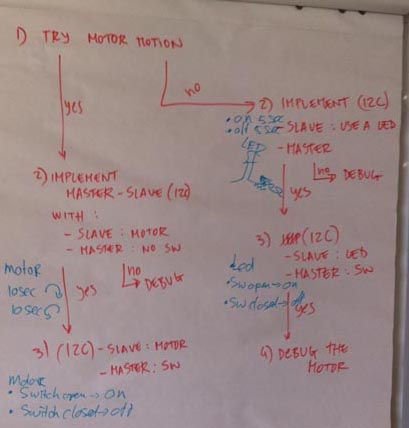 1) TRY MOTOR MOTION
yes
no
2) IMPLEMENT (I2C)
• on 5 sec
• off 5 sec
- SLAVE : USE A LED
LED
- MASTER
no
DEBUG
yes
2) IMPLEMENT
MASTER - SLAVE (I2C)
WITH :
- SLAVE : MOTOR
- MASTER : NO SW
3) (I2C)
Led
- SLAVE : LED
- MASTER : SW
• Sw open → on
• Sw closed → off
yes
motor
10sec
10sec
yes
no
DEBUG
3) (I2C) - SLAVE : MOTOR
- MASTER : SW
4) DEBUG THE
MOTOR
Motor
• Switch open → On
• Switch closed → off